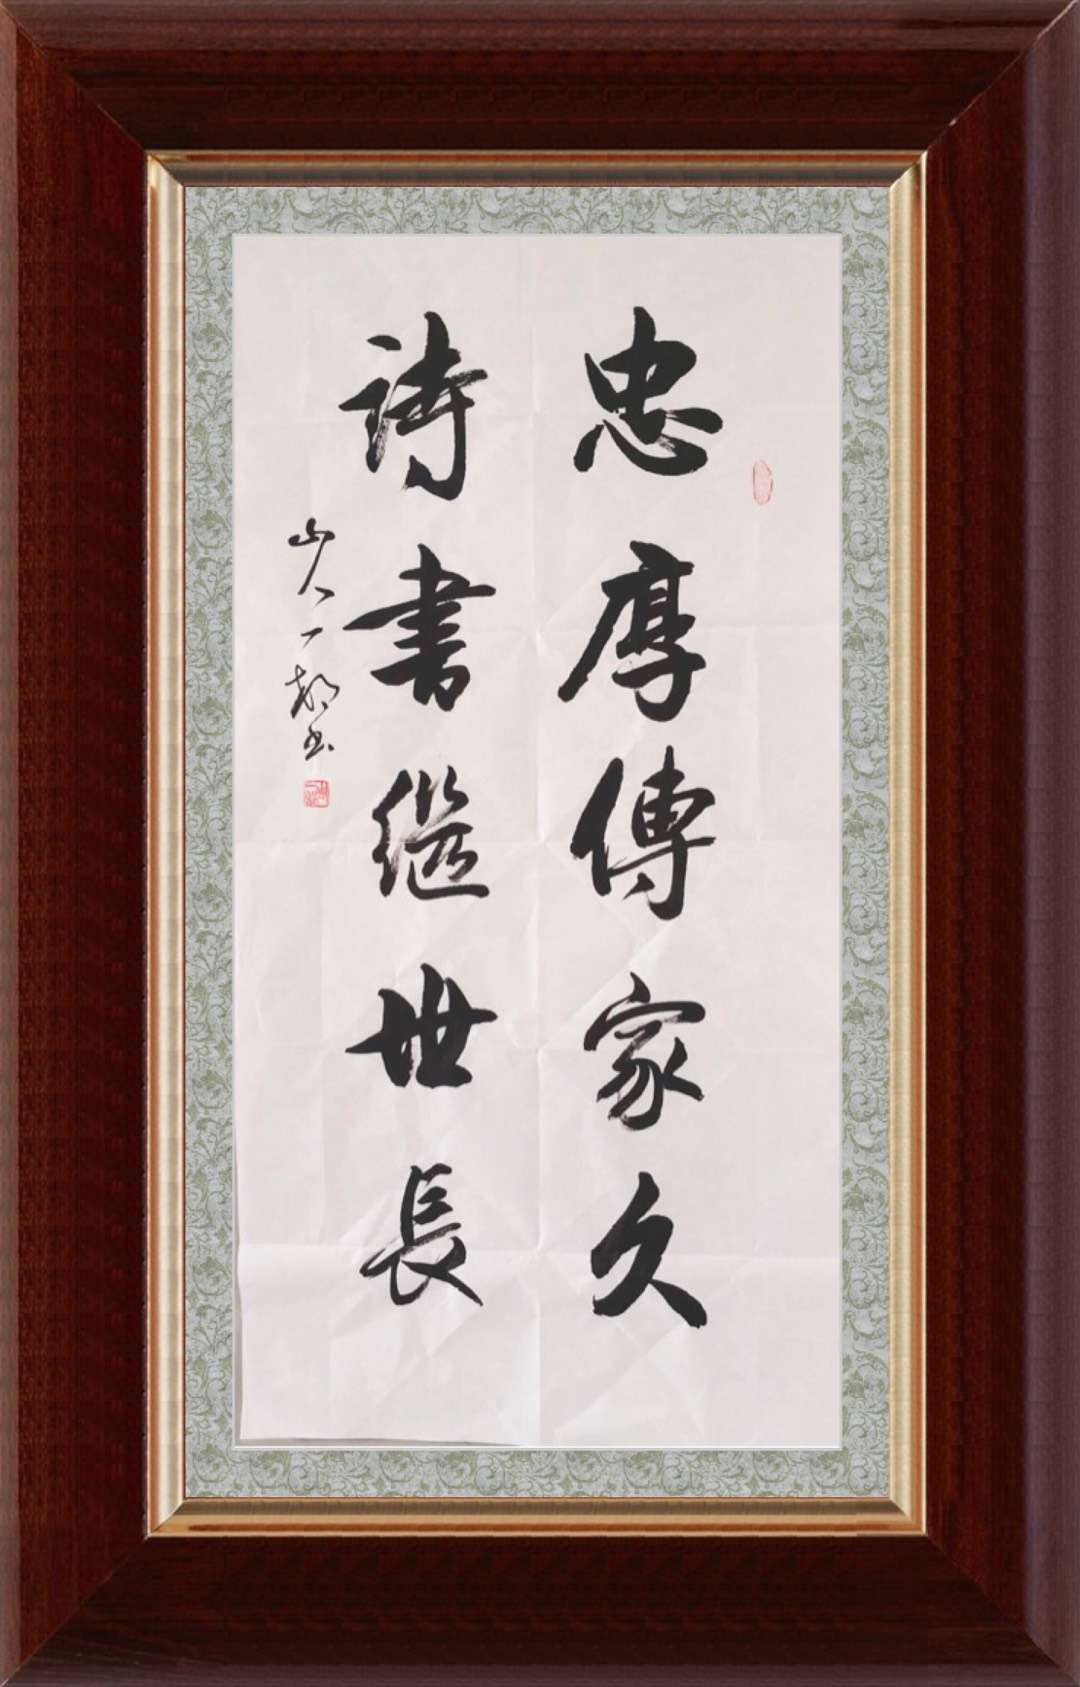 忠厚傳家久
詩書繼世長
山人一都书